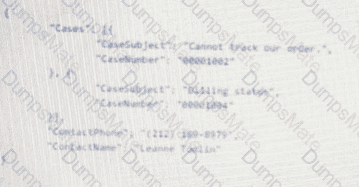 {
"Cases": [{
"CaseSubject": "Cannot track our order.",
"CaseNumber": "00001002"
}, {
"CaseSubject": "Billing status",
"CaseNumber": "00001004"
}],
"ContactPhone": "(212)
"ContactName": "Leanne Tomlin"
}